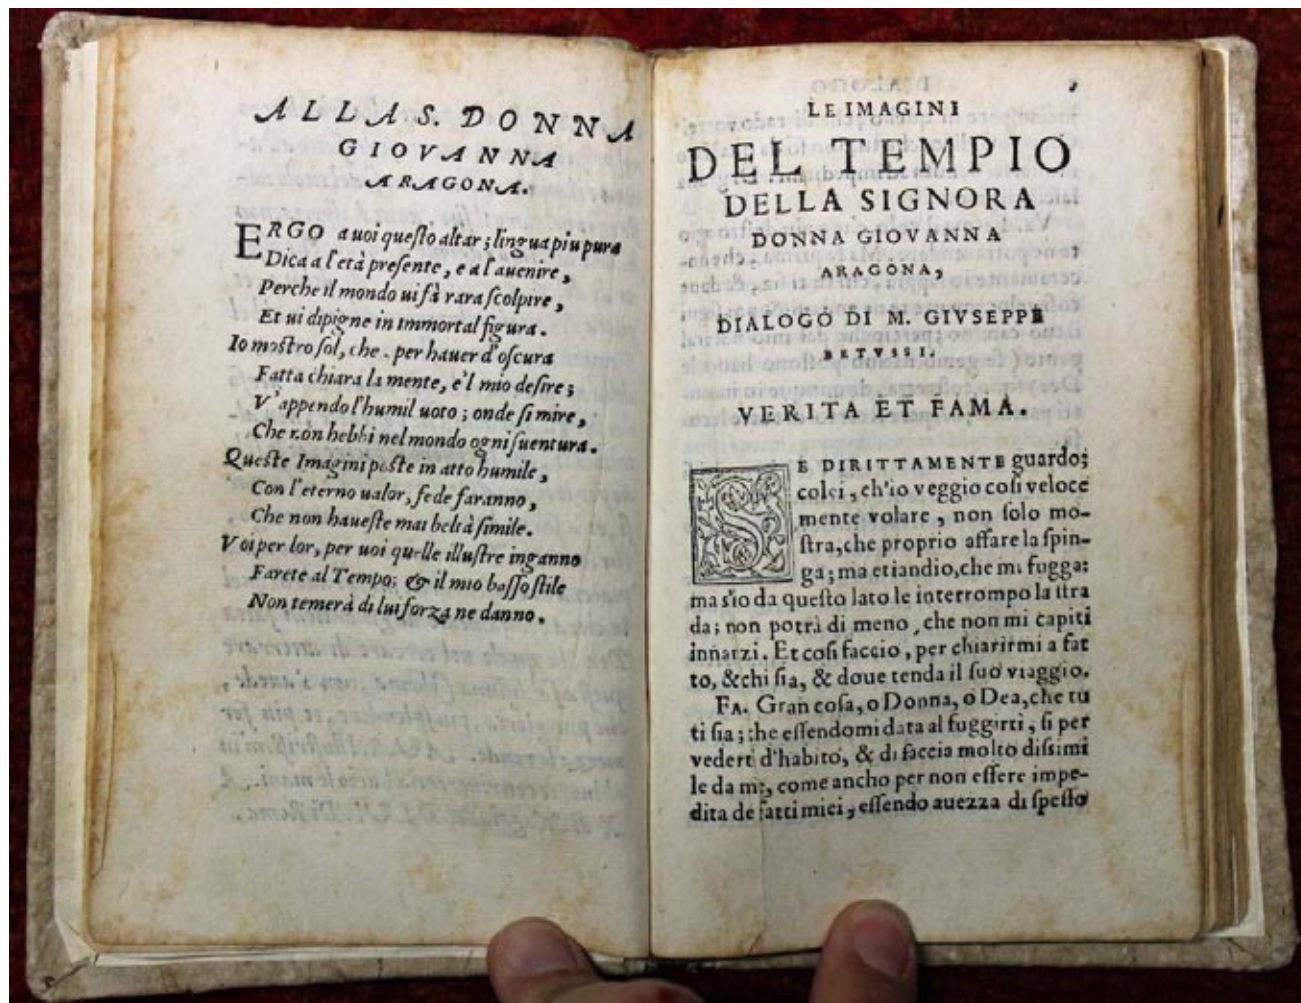 ALLA S. DONNA
GIOVANNA
ARAGONA.
ERGO a uoi queſto altar; lingua piu pura
Dica a l'età preſente, e a l'auenire,
Perche il mondo ui fà rara ſcolpire,
Et ui dipigne in immortal figura.
Io moſtro ſol, che per hauer d'oſcura
Fatta chiara la mente, e'l mio deſire;
V'appendo l'humil uoto; onde ſi mire,
Che non hebbi nel mondo ogni ſuentura.
Queſte Imagini poſte in atto humile,
Con l'eterno ualor, fede faranno,
Che non haueſte mai beltà ſimile.
Voi per lor, per uoi quelle illuſtre inganno
Farete al Tempo; & il mio baſſo ſtile
Non temerà di lui forza ne danno.
LE IMAGINI
DEL TEMPIO
DELLA SIGNORA
DONNA GIOVANNA
ARAGONA,
DIALOGO DI M. GIVSEPPE
BETVSSI.
VERITA ET FAMA.
SE DIRITTAMENTE guardo;
colei, ch'io veggio coſi veloce
mente volare, non ſolo mo-
ſtra, che proprio affare la ſpin-
ga; ma etiandio, che mi fugga:
ma s'io da queſto lato le interrompo la ſtra
da; non potrà di meno, che non mi capiti
innanzi. Et coſi faccio, per chiarirmi a fat
to, & chi ſia, & doue tenda il ſuo viaggio.
FA. Gran coſa, o Donna, o Dea, che tu
ti ſia; che eſſendomi data al fuggirti, ſi per
vederti d'habito, & di faccia molto diſsimi
le da me, come ancho per non eſſere impe-
dita de fatti miei, eſſendo auezza di ſpeſſo